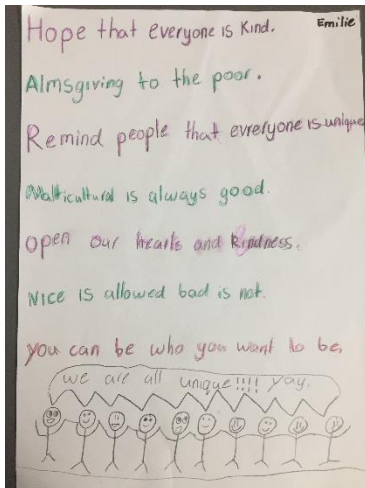 Emilie
Hope that everyone is kind.
Almsgiving to the poor.
Remind people that evreryone is unique
Multicultural is always good.
Open our hearts and kindness.
Nice is allowed bad is not.
you can be who you want to be.
we are all unique!!!! yay.